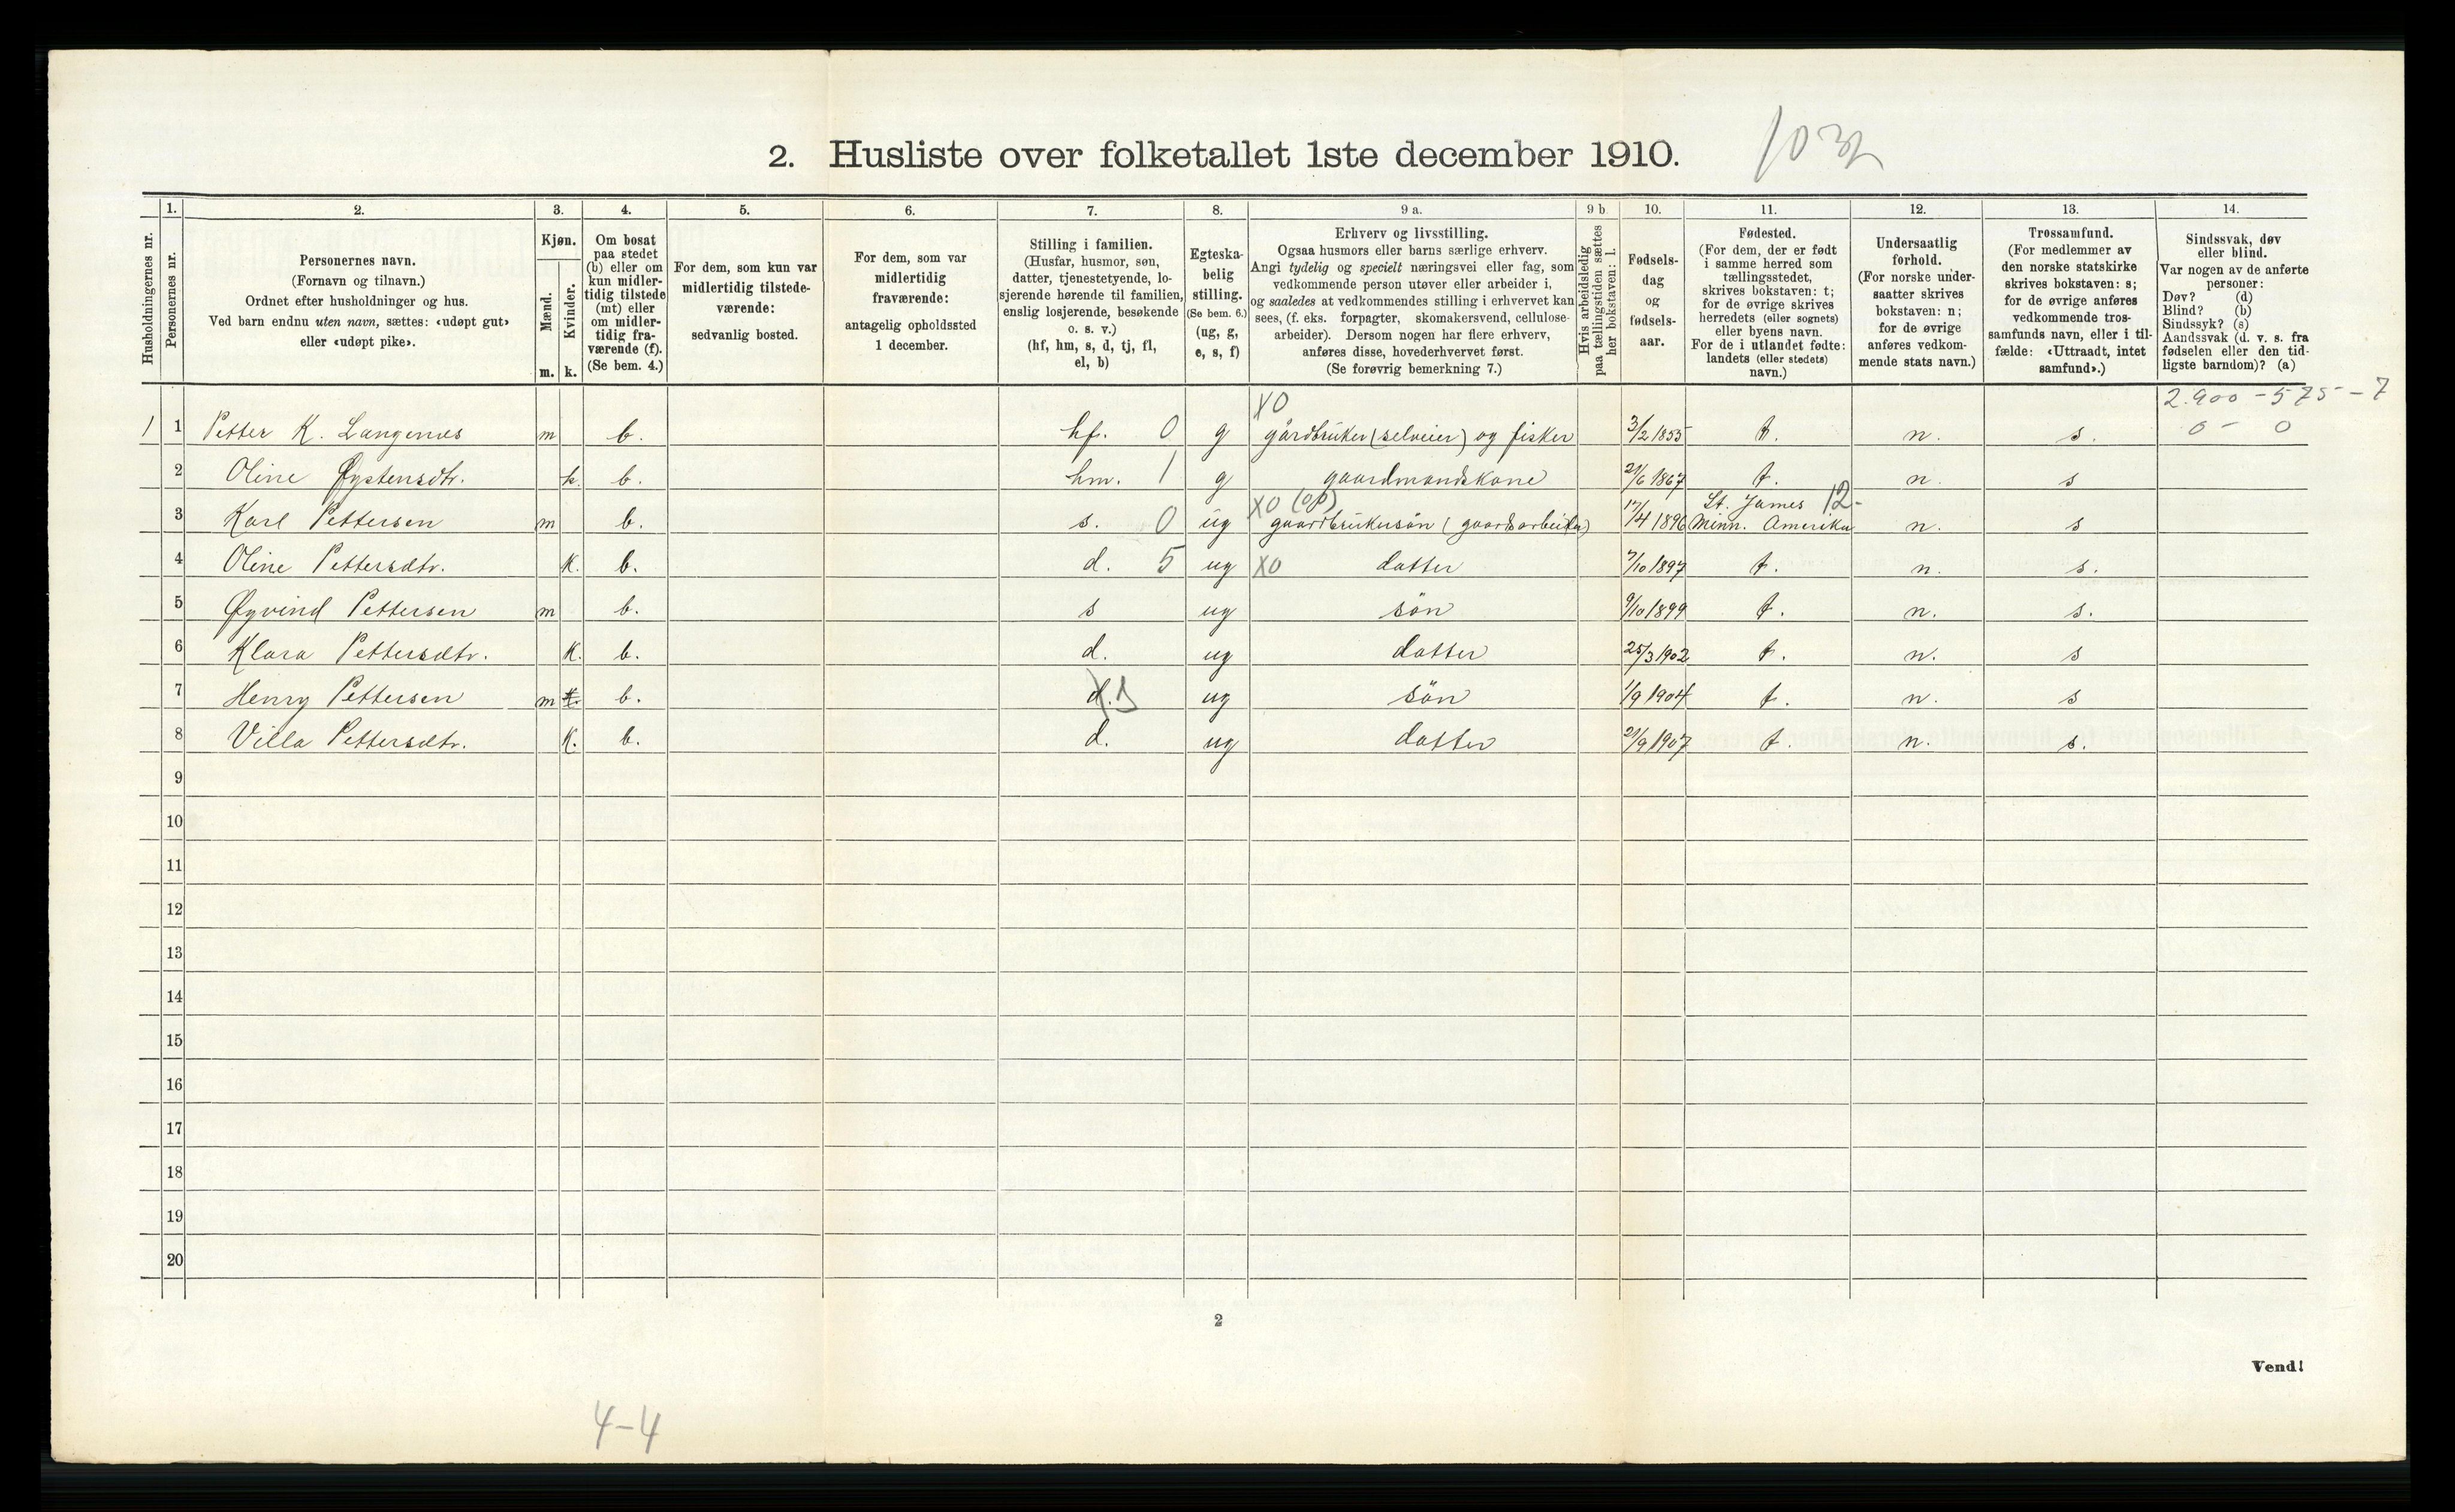 2. Husliste over folketallet 1ste december 1910.
1. 2. 3. 4. 5. 6. 7. 8. 9 a. 9 b. 10. 11. 12. 13. 14.
Husholdningernes nr.
Personernes nr.
Personernes navn.
(Fornavn og tilnavn.)
Ordnet efter husholdninger og hus.
Ved barn endnu uten navn, sættes: «udøpt gut»
eller «udøpt pike».
Kjøn.
Mænd.
Kvinder.
m. k.
Om bosat
paa stedet
(b) eller om
kun midler-
tidig tilstede
(mt) eller
om midler-
tidig fra-
værende (f).
(Se bem. 4.)
For dem, som kun var
midlertidig tilstede-
værende:
sedvanlig bosted.
For dem, som var
midlertidig
fraværende:
antagelig opholdssted
1 december.
Stilling i familien.
(Husfar, husmor, søn,
datter, tjenestetyende, lo-
sjerende hørende til familien,
enslig losjerende, besøkende
o. s. v.)
(hf, hm, s, d, tj, fl,
el, b)
Egteska-
belig
stilling.
(Se bem. 6.)
(ug, g,
e, s, f)
Erhverv og livsstilling.
Ogsaa husmors eller barns særlige erhverv.
Angi tydelig og specielt næringsvei eller fag, som
vedkommende person utøver eller arbeider i,
og saaledes at vedkommendes stilling i erhvervet kan
sees, (f. eks. forpagter, skomakersvend, cellulose-
arbeider). Dersom nogen har flere erhverv,
anføres disse, hovederhvervet først.
(Se forøvrig bemerkning 7.)
Hvis arbeidsledig
paa tællingstiden sættes
her bokstaven: l.
Fødsels-
dag
og
fødsels-
aar.
Fødested.
(For dem, der er født
i samme herred som
tællingsstedet,
skrives bokstaven: t;
for de øvrige skrives
herredets (eller sognets)
eller byens navn.
For de i utlandet fødte:
landets (eller stedets)
navn.)
Undersaatlig
forhold.
(For norske under-
saatter skrives
bokstaven: n;
for de øvrige
anføres vedkom-
mende stats navn.)
Trossamfund.
(For medlemmer av
den norske statskirke
skrives bokstaven: s;
for de øvrige anføres
vedkommende tros-
samfunds navn, eller i til-
fælde: «Uttraadt, intet
samfund».)
Sindssvak, døv
eller blind.
Var nogen av de anførte
personer:
Døv? (d)
Blind? (b)
Sindssyk? (s)
Aandssvak (d. v. s. fra
fødselen eller den tid-
ligste barndom)? (a)
X0 2.900 - 575 - 7
1 1 Petter K. Langenes m b. hf. 0 g gårdbruker (selveier) og fisker 3/2 1855 t. n. s. 0 - 0
2 Oline Øystensdtr. k. b. hm. 1 g gaardmandskone 21/6 1867 t. n. s
X0 (op) St. James 12-
3 Karl Pettersen m b. s. 0 ug gaardbrukersön (gaardsarbeider) 17/4 1896 Minn. Amerika n. s
4 Oline Pettersdtr. K. b. d. 5 ug X0 datter 7/10 1897 t. n. s.
5 Øyvind Pettersen m b. s ug sön 9/10 1899 t. n. s.
6 Klara Pettersdtr. K. b. d. ug datter 25/3 1902 t. n. s
7 Henry Pettersen m k. b. d. s ug sön 1/9 1904 t. n. s
8 Villa Pettersdtr. K. b. d. ug datter 21/9 1907 t. n. s.
9
10
11
12
13
14
15
16
17
18
19
20
2
Vend!
4-4